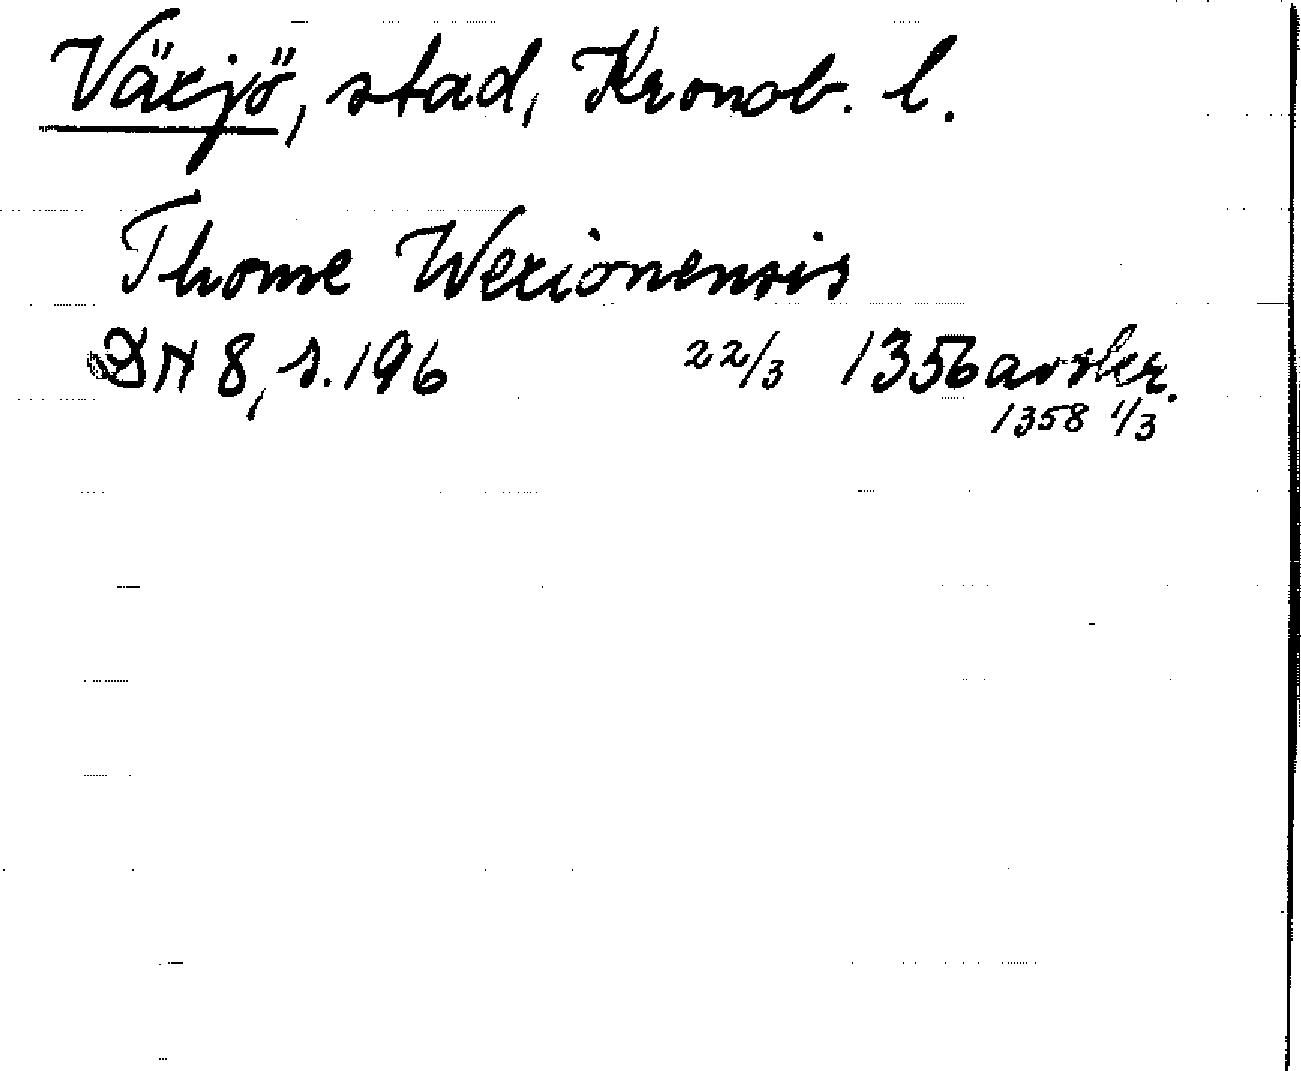 Växjö, stad, Kronob. l.
Thome Wexionensis
DN 8, s. 196 22/3 1356 avskr.
1358 1/3